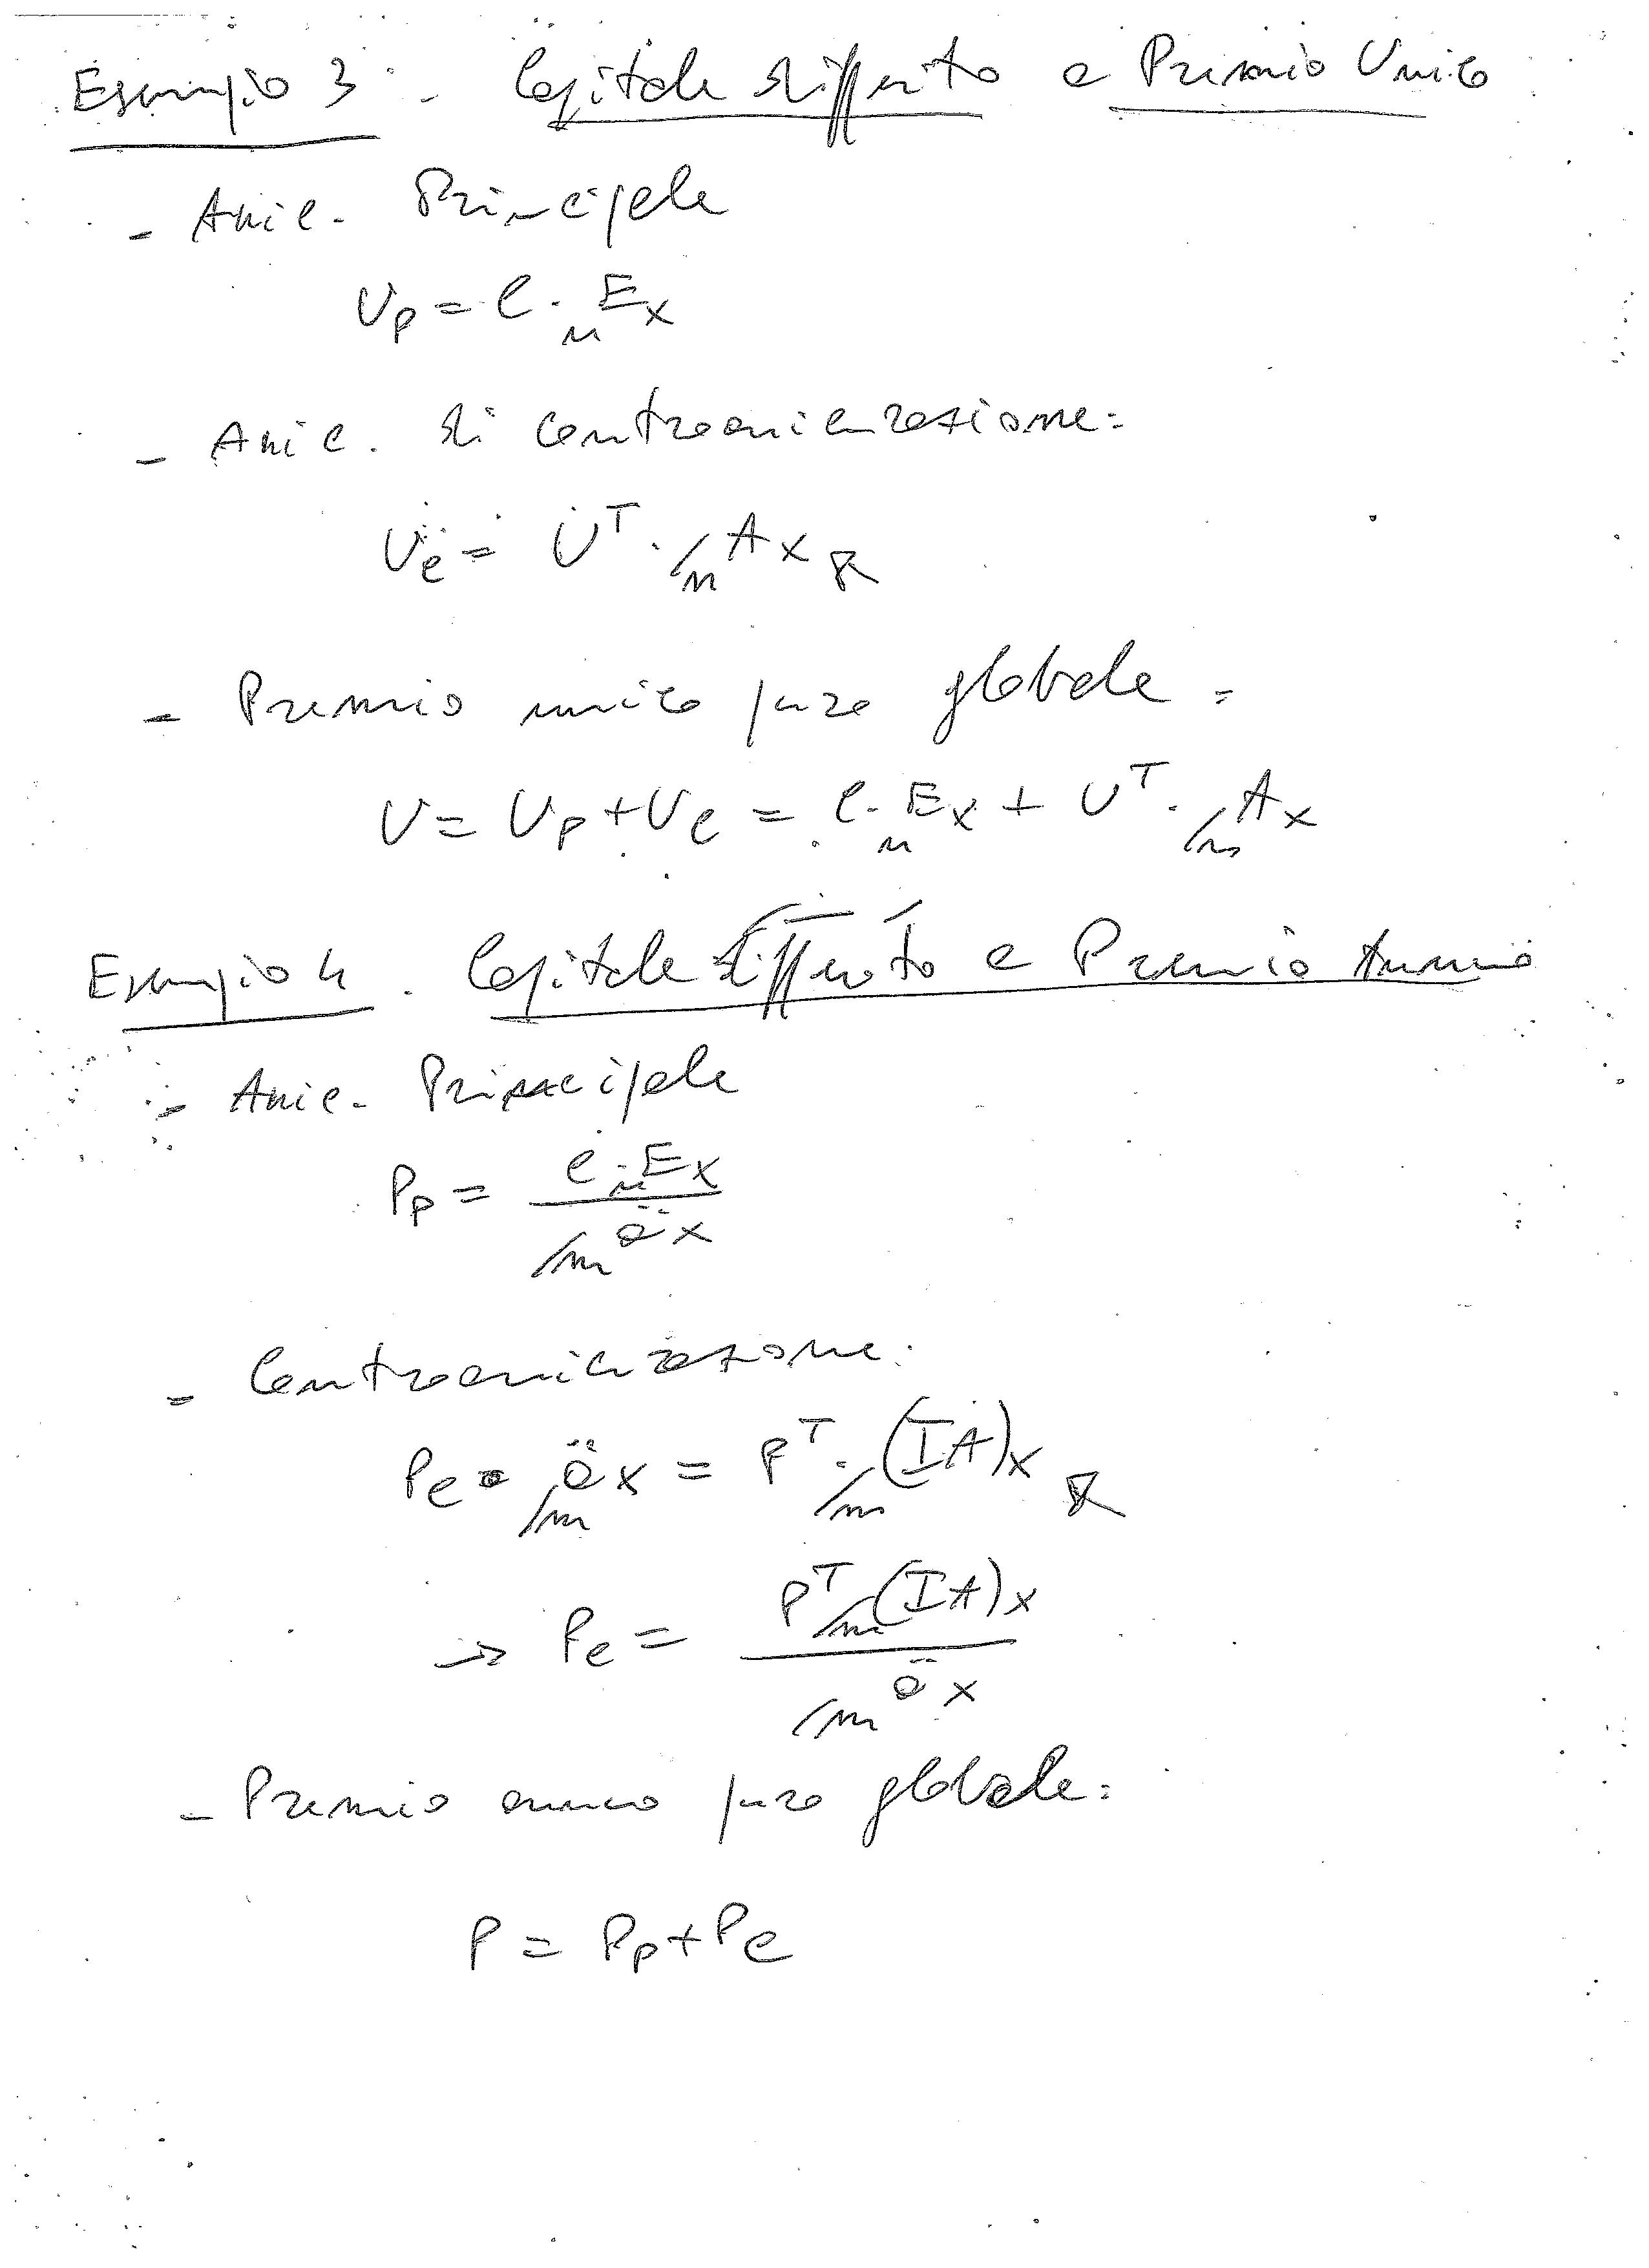 Esempio 3: Capitale differito a Premio Unico
- Assic. Principale
U_p = C · _nE_x
- Assic. di Controassicurazione:
U_c = U^T · /_nA_x
- Premio unico puro globale:
U = U_p + U_c = C · _nE_x + U^T · /_nA_x
Esempio 4. Capitale differito a Premio Annuo
- Assic. Principale
P_p = C · _nE_x / /_mä_x
- Controassicurazione:
P_c · /_mä_x = P^T · /_m(IA)_x
→ P_c = P^T /_m(IA)_x / /_mä_x
- Premio annuo puro globale:
P = P_p + P_c